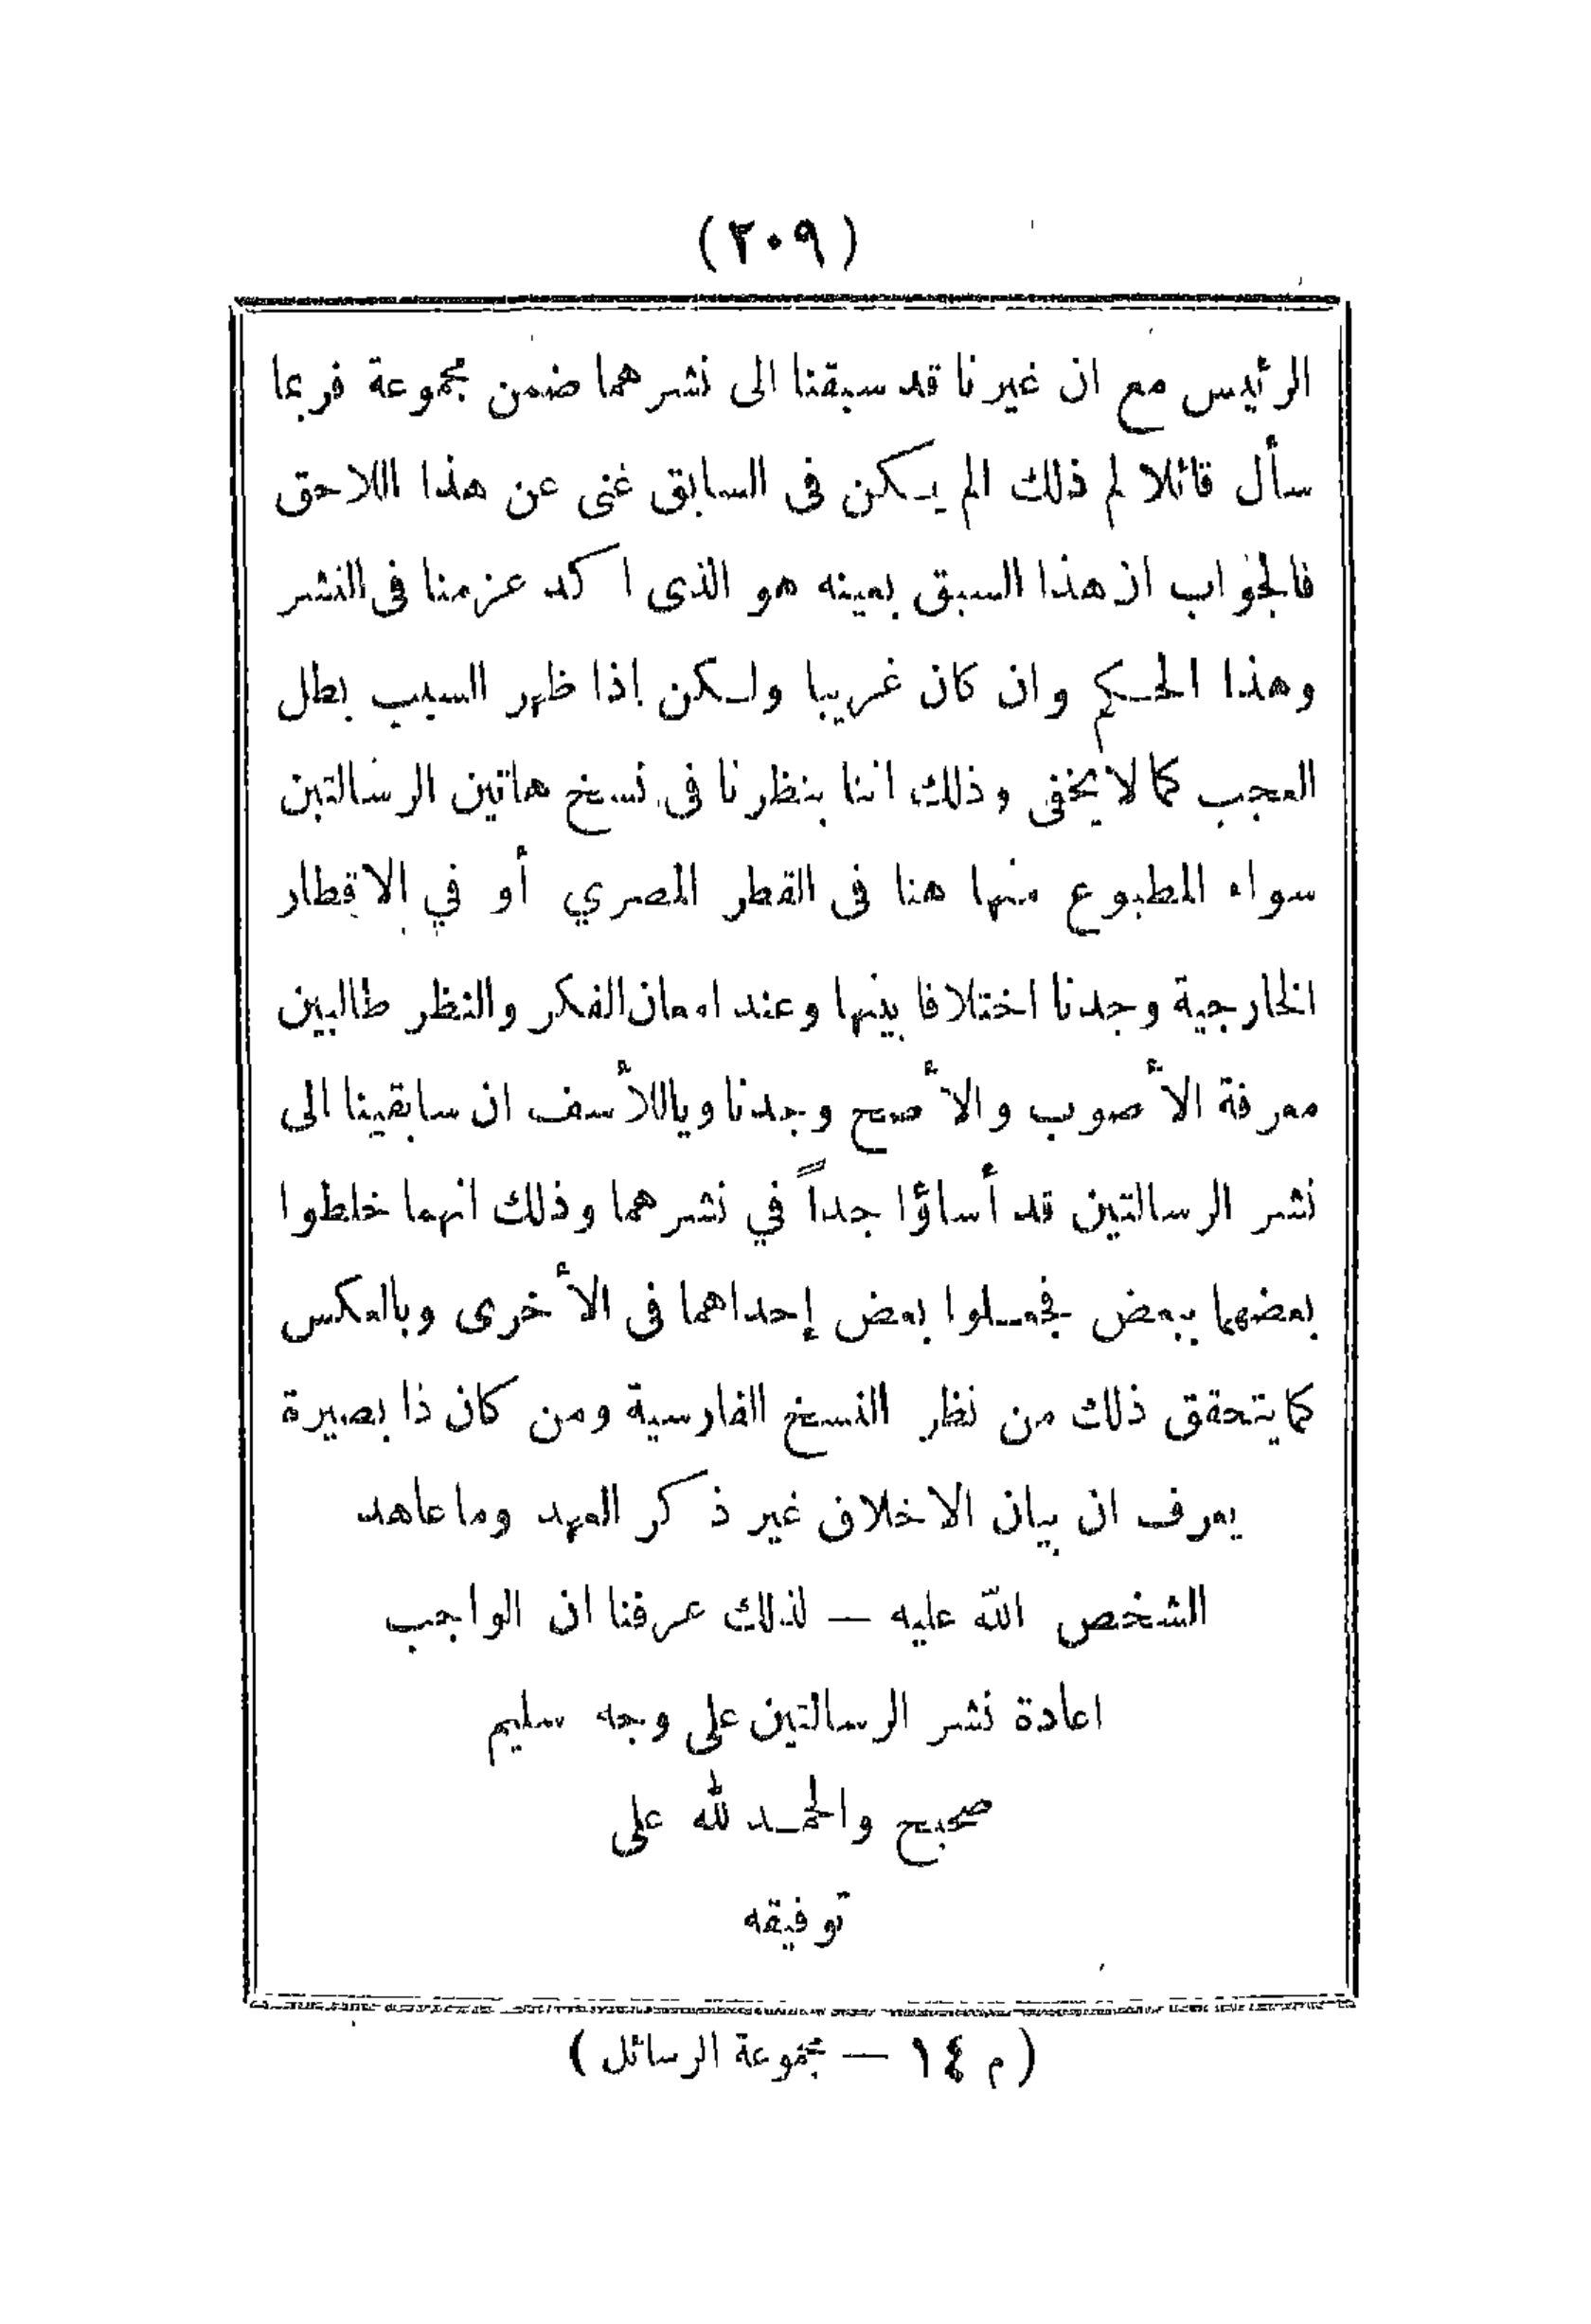 (٢٠٩)
الرئيس مع ان غيرنا قد سبقنا الى نشرهما ضمن مجموعة فربما
سأل قائلا لم ذلك الم يكن فى السابق غنى عن هذا اللاحق
فالجواب ان هذا السبق بعينه هو الذى اكد عزمنا فى النشر
وهذا الحكم وان كان غريبا ولكن إذا ظهر السبب بطل
العجب كما لا يخفى وذلك اننا بنظرنا فى نسخ هاتين الرسالتين
سواء المطبوع منها هنا فى القطر المصري أو في الاقطار
الخارجية وجدنا اختلافا بينها وعند امعان الفكر والنظر طالبين
معرفة الأصوب والأصح وجدنا وياللأسف ان سابقينا الى
نشر الرسالتين قد أساؤا جداً في نشرهما وذلك انهما خلطوا
بعضهما ببعض فجعلوا بعض إحداهما فى الأخرى وبالعكس
كما يتحقق ذلك من نظر النسخ الفارسية ومن كان ذا بصيرة
يعرف ان بيان الاخلاق غير ذكر العهد وما عاهد
الشخص الله عليه — لذلك عرفنا ان الواجب
اعادة نشر الرسالتين على وجه سليم
صحيح والحمد لله على
توفيقه
(م ١٤ — مجموعة الرسائل)